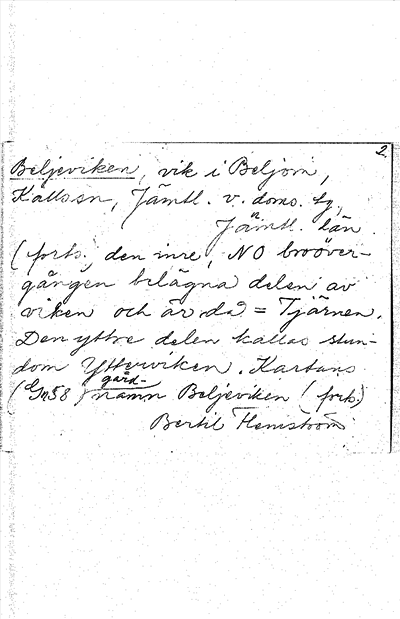 2.
Beljeviken, vik i Beljom,
Kalls sn, Jämtl. v. doms. tg,
Jämtl. län.
(forts., den inre, NO broöver-
gången belägna delen av
viken och är då = Tjärnen.
Den yttre delen kallas stun-
dom Ytterviken. Kartans
gård-
(Gn58) namn Beljeviken (forts.)
Bertil Flemström